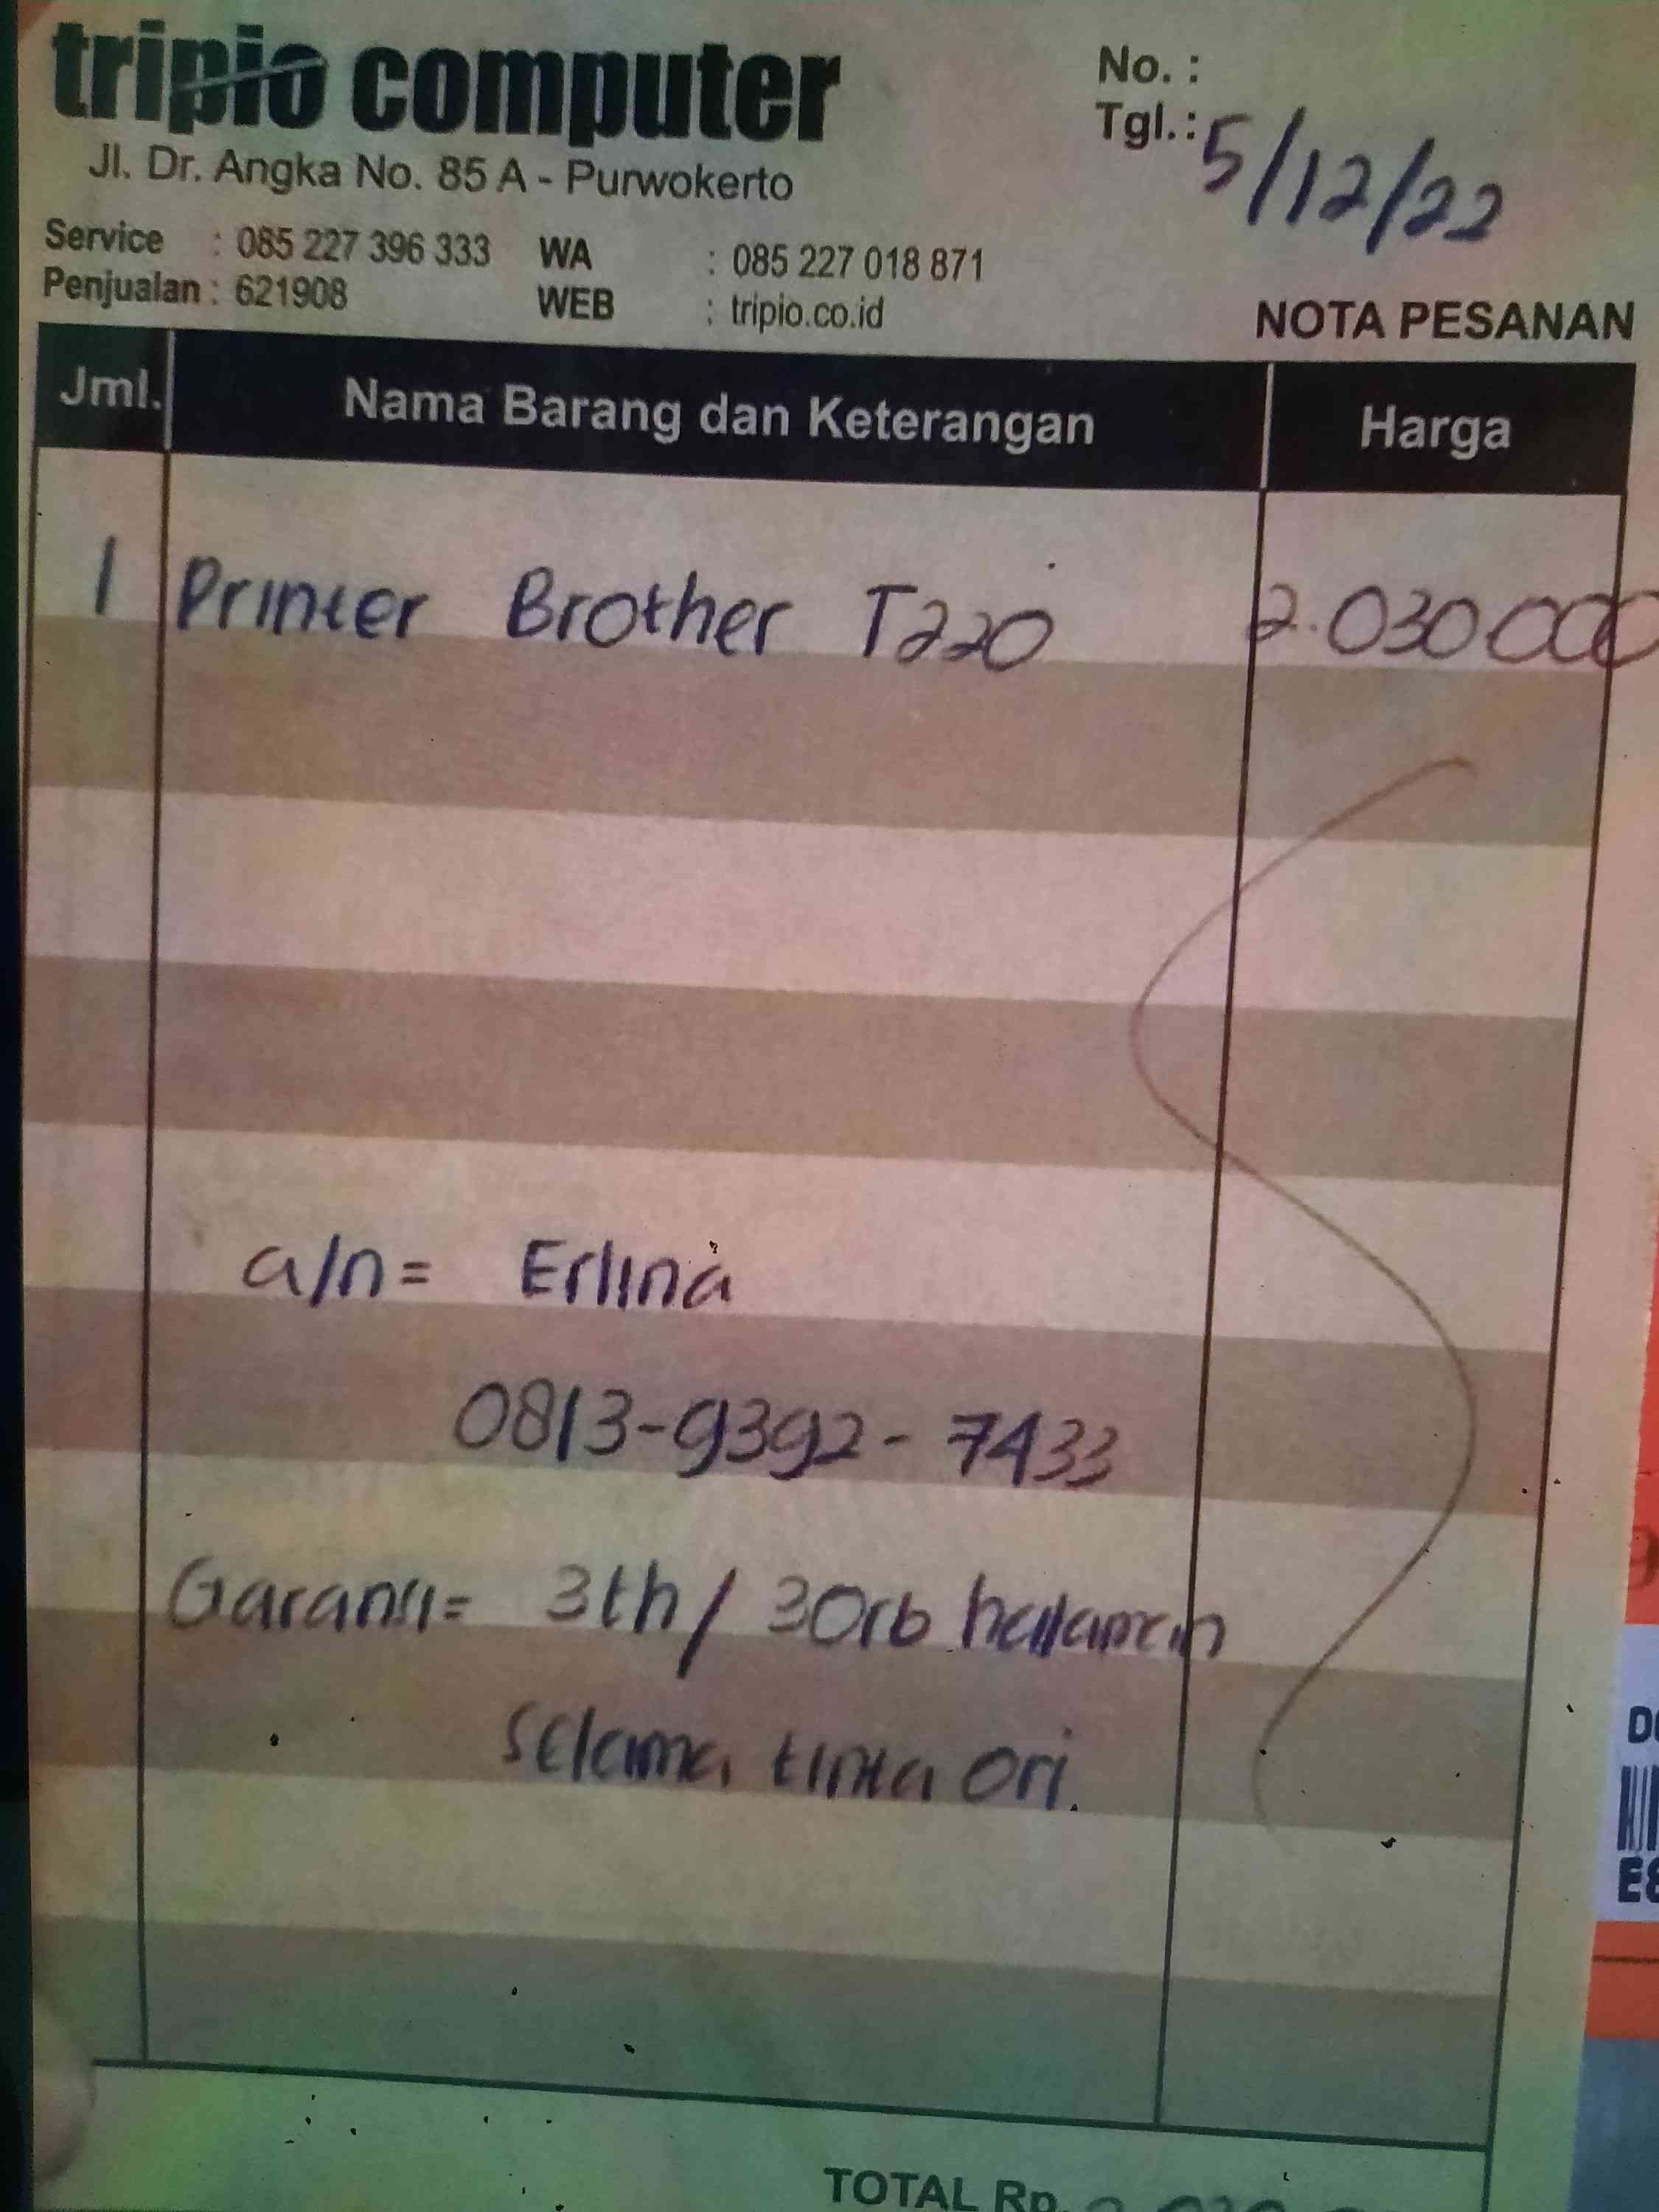 tripio computer
Jl. Dr. Angka No. 85 A - Purwokerto
No. :
Tgl. : 5/12/22
Service : 085 227 396 333 WA : 085 227 018 871
Penjualan : 621908 WEB : tripio.co.id
NOTA PESANAN
Jml. Nama Barang dan Keterangan Harga
1 Printer Brother T220 2.030.000
a/n = Erlina
0813-9392-7433
Garansi = 3th / 30rb halaman
selama tinta ori.
TOTAL Rp.